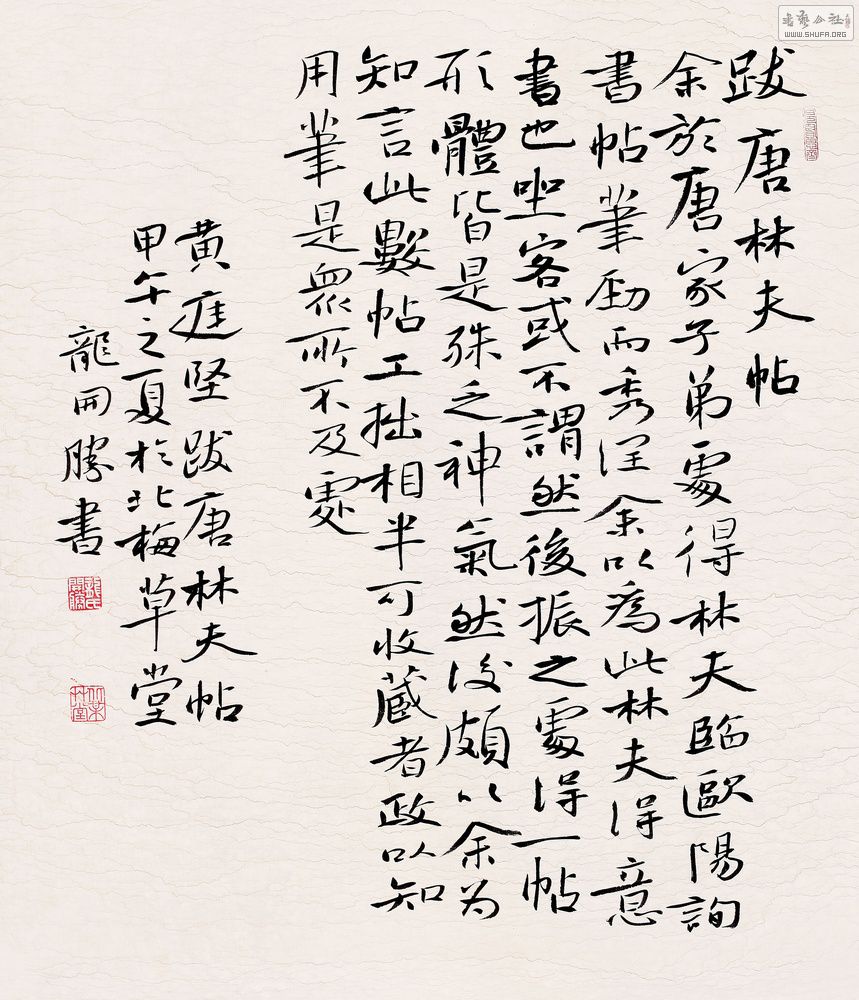 跋唐林夫帖
余於唐家子弟處得林夫臨歐陽詢
書帖筆勁而秀潤余以為此林夫得意
書也坐客或不謂然後振之處得一帖
形體皆是殊乏神氣然後頗以余为
知言此數帖工拙相半可收藏者政以知
用筆是眾所不及處
黄庭坚跋唐林夫帖
甲午之夏於北梅草堂
龍開勝書
书艺公社
WWW.SHUFA.ORG